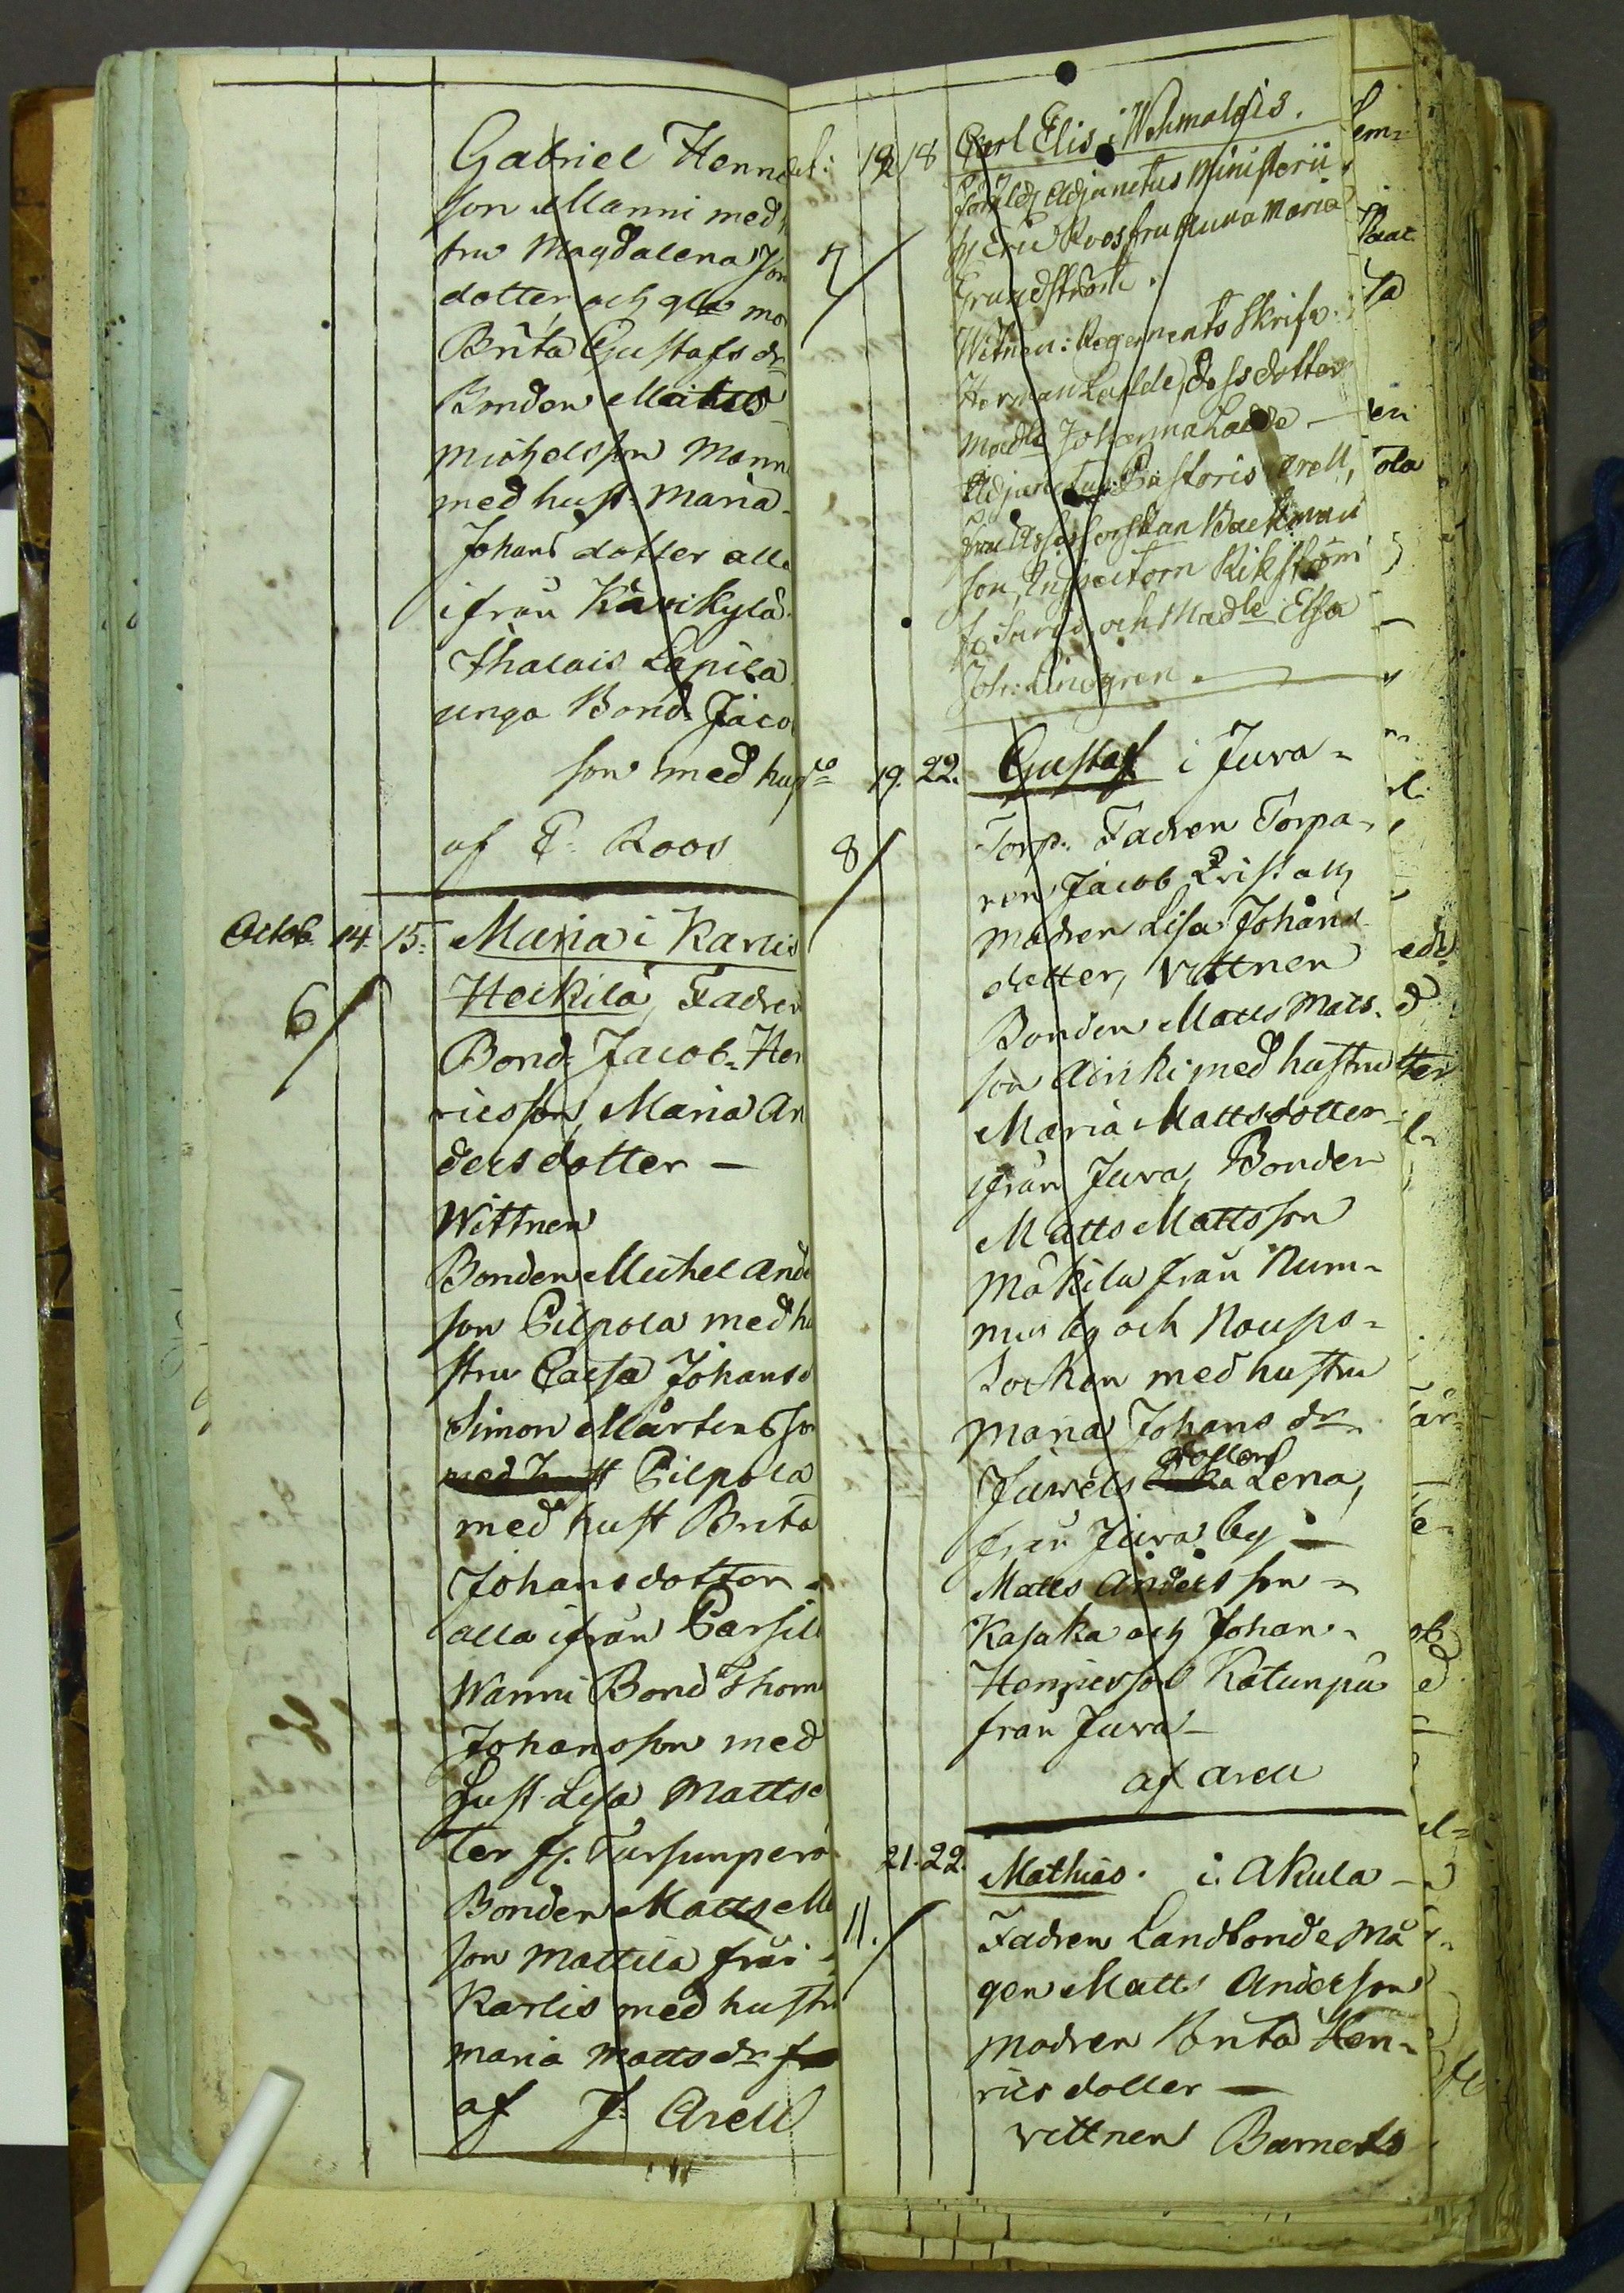 Gabriel Henn
son Manni med
tru Magdalena Jon
dotter, och gla mo
Brita Gustafs dr
Bonden Matts
Michelsson Mann
med hust: Maria
Johans dotter alla
ifrån Karikylä
Thalais Lapila
unga Bond: Jaco
son med hus
af E. Roos
Octob. 14. 15. Maria i Karlis
6 Heikilä, Fadren
Bond: Jacob Hen
ricsson, Maria An
dersdotter —
Wittnen
Bonden Michel Ande
son Pilpola med hu
stru Caisa Johans d
Simon Mårtensson
med hust Pilpola
med hust Brita
Johansdotter
alla ifrån Carsil
Wanni Bond Thom
Johansson med
hust Lisa Matts d
ter fr. Tursunperä
Bonden Matts M
son Mattila från
Karlis med hustru
Maria Mattsdr
af J: Arell
12 18 Carl Elis i Wehmalais.
Föräld: Adjunctus Ministerii
7 H: Eric Roos fru Anna Maria
Grundström.
Witnen: Regements Skrifv.
Herman Ladde, dess dotter
Madle Johanna Ladde —
Adjunctus Pastoris Arell,
fru Assessorskan Backman
son, Inspectorn Rikström
och Madle Elsa
Joh: Lindgren.
19. 22. Gustaf i Juva
8 Torp: Fadren Torpa-
ren Jacob Erics: och
Modren Lisa Johans
dotter, Vittnen
Bonden Matts Mats-
son Äiriki med hustru
Maria Mattsdotter
ifrån Juva, Bonden
Matts Mattsson
Mäkila från Num-
mis by och Nousis-
Socken med hustru
Maria Johans dr
Juvels dotter Lena,
från Juva by —
Matts Andersson
Kasaka och Johan
Henricsson Katunpä
från Juva —
af Arell
21. 22. Mathias. i Akula —
11. Fadren Landbonde Må
gen Matts Andersson
Modren Brita Hen-
ricsdotter —
Vittnen Barnets